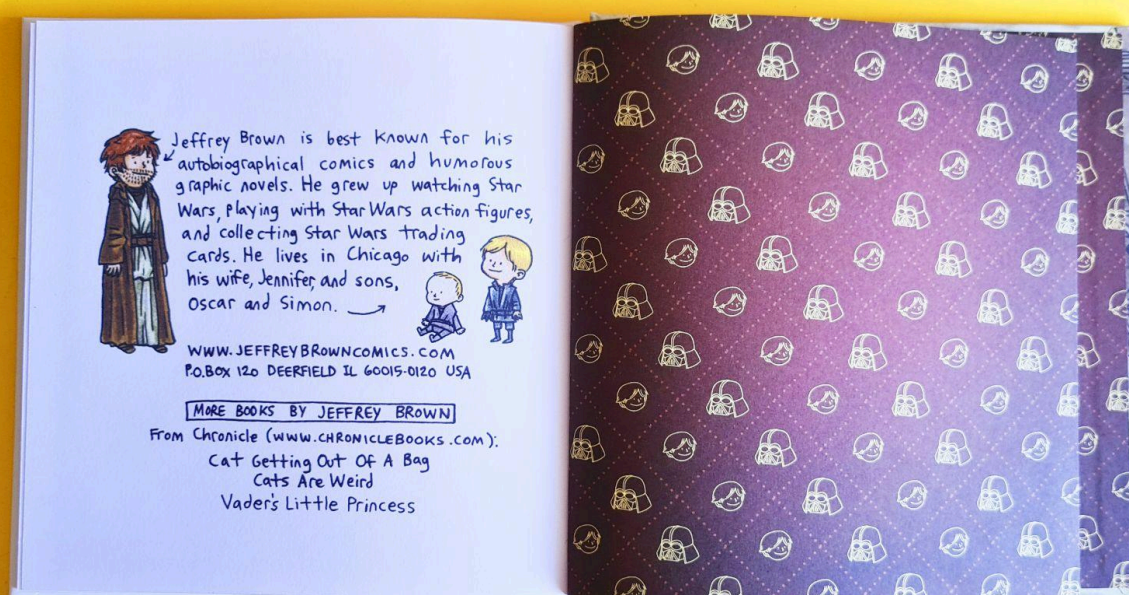 Jeffrey Brown is best known for his
autobiographical comics and humorous
graphic novels. He grew up watching Star
Wars, playing with Star Wars action figures,
and collecting Star Wars trading
cards. He lives in Chicago with
his wife, Jennifer, and sons,
Oscar and Simon.
WWW.JEFFREYBROWNCOMICS.COM
P.O. BOX 120 DEERFIELD IL 60015-0120 USA
MORE BOOKS BY JEFFREY BROWN
From Chronicle (WWW.CHRONICLEBOOKS.COM):
Cat Getting Out Of A Bag
Cats Are Weird
Vader's Little Princess